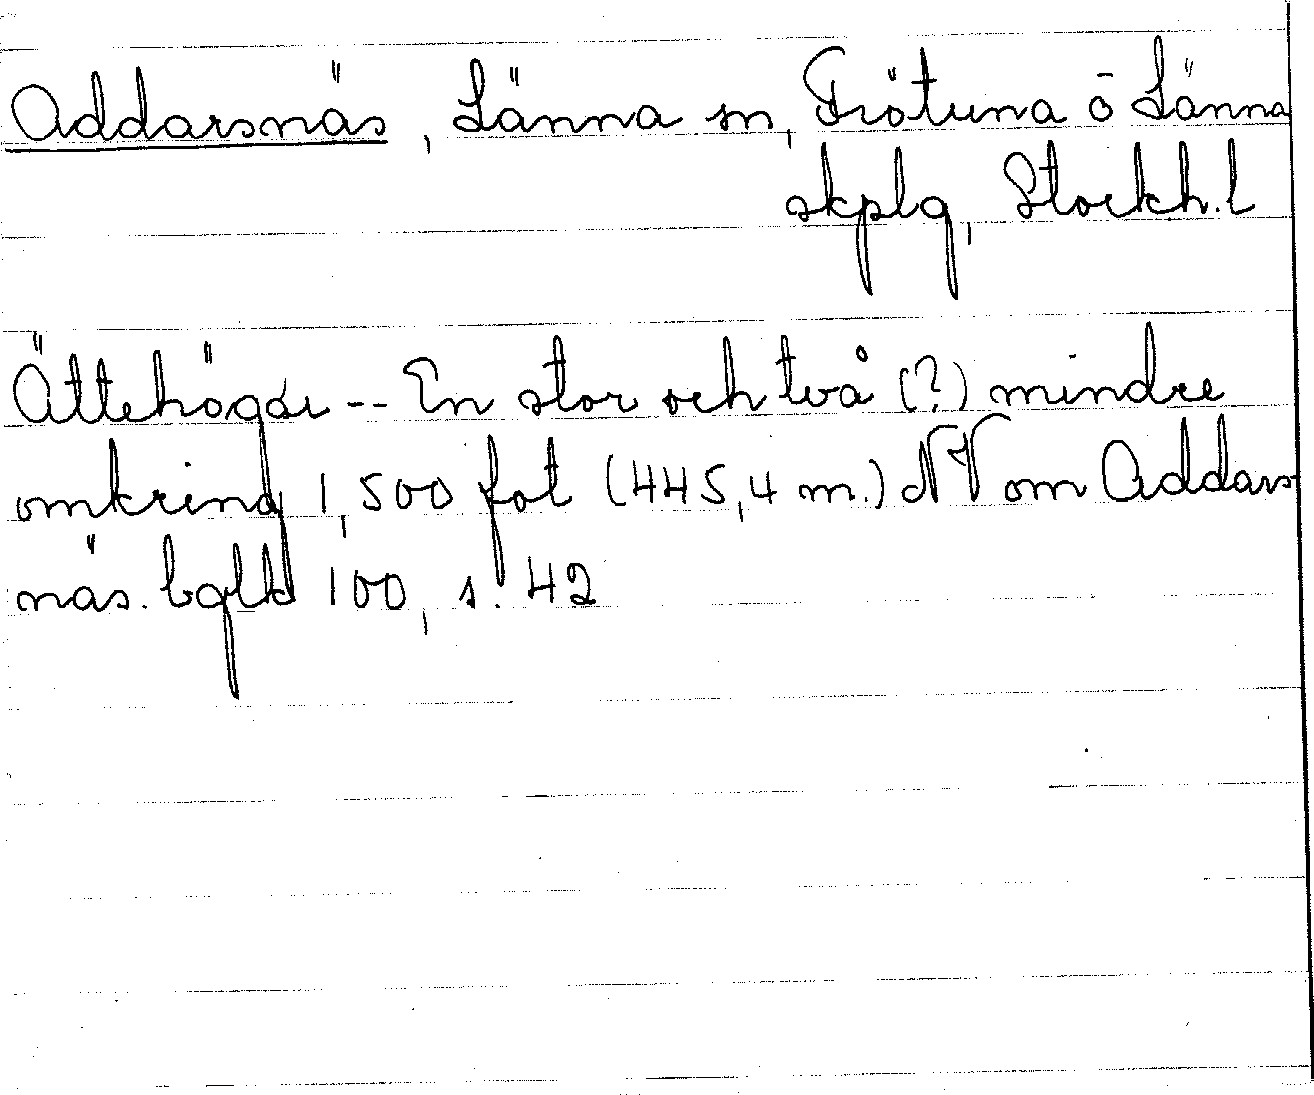 Addarsnäs, Länna sn, Frötuna o Länna
skplg, Stockh. l
Ättehögar -- En stor och två (?) mindre
omkring 1,500 fot (445,4 m.) NV om Addars
näs. bglbl 100, s. 42